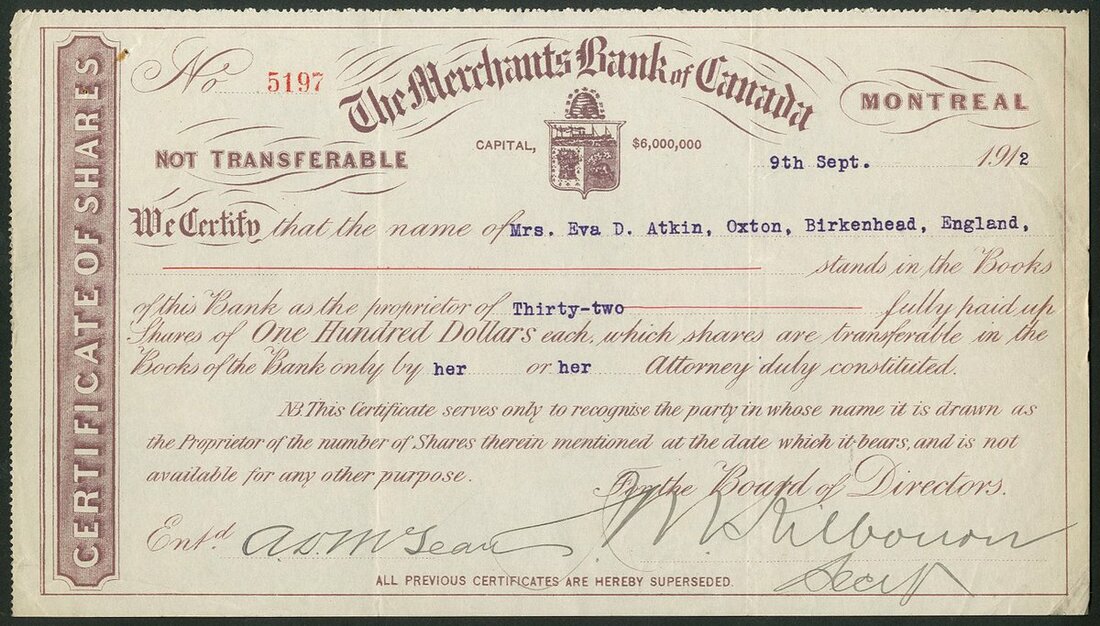 CERTIFICATE OF SHARES
No 5197
The Merchants Bank of Canada
MONTREAL
CAPITAL, $6,000,000
NOT TRANSFERABLE
9th Sept. 1912
We Certify that the name of Mrs. Eva D. Atkin, Oxton, Birkenhead, England,
stands in the Books
of this Bank as the proprietor of Thirty-two fully paid up
Shares of One Hundred Dollars each, which shares are transferable in the
Books of the Bank only by her or her Attorney duly constituted.
NB This Certificate serves only to recognise the party in whose name it is drawn as
the Proprietor of the number of Shares therein mentioned at the date which it bears, and is not
available for any other purpose.
For the Board of Directors.
Ent.d A. D. McLean
Kilbourn
Secy
ALL PREVIOUS CERTIFICATES ARE HEREBY SUPERSEDED.